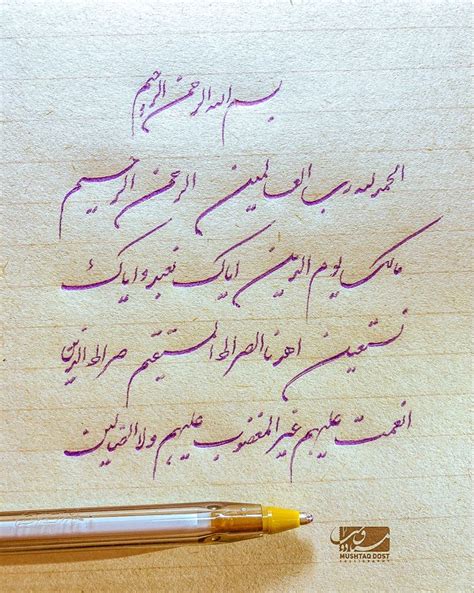 بسم الله الرحمن الرحیم
الحمد لله رب العالمین الرحمن الرحیم
مالک یوم الدین ایاک نعبد و ایاک
نستعین اهدنا الصراط المستقیم صراط الذین
انعمت علیهم غیر المغضوب علیهم ولا الضالین
MUSHTAQ DOST
CALLIGRAPHY